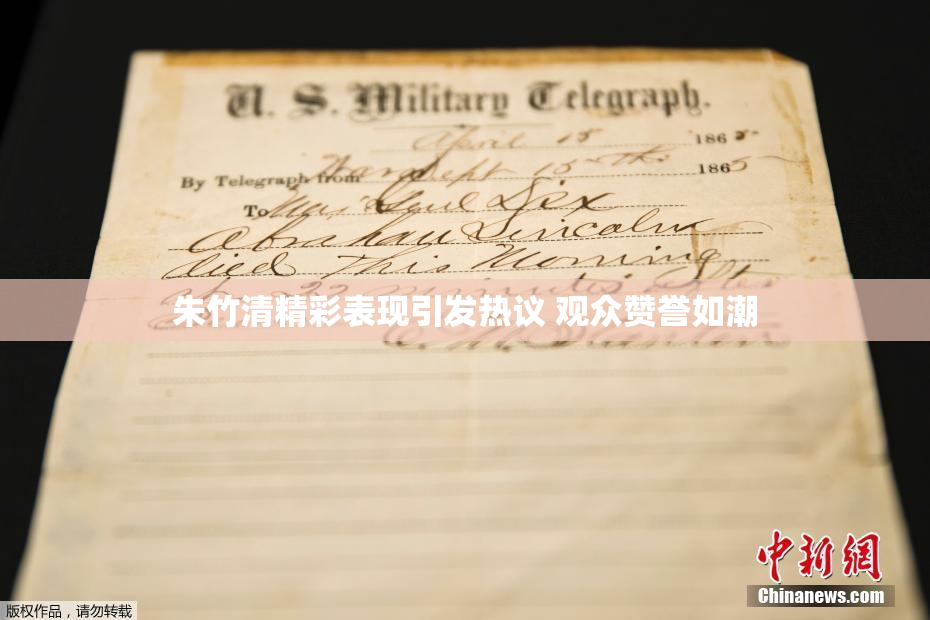 U. S. Military Telegraph.
April 15 1865
By Telegraph from War Dept 15th 1865
To Maj Genl Dix
Abraham Lincoln
died This Morning
at 22 minutes after
朱竹清精彩表现引发热议 观众赞誉如潮
E. M. Stanton
中新网
Chinanews.com
版权作品，请勿转载